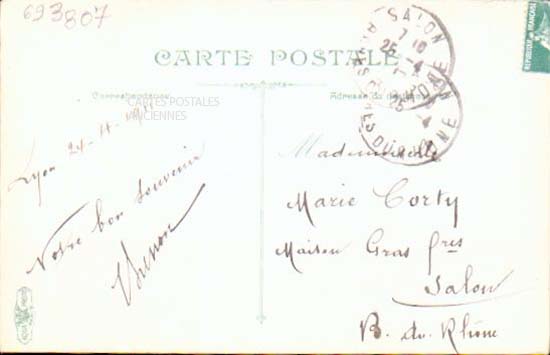 693807
SALON
7 10
25 -4
BOUCHES DU RHONE
REPUBLIQUE FRANÇAISE
CARTE POSTALE
Correspondance
Adresse du
CARTES POSTALES
ANCIENNES
Lyon 24-4-1911
Notre bon souvenir
Mademoiselle
Marie Corty
Maison Gras frès
Salon
B. du Rhône